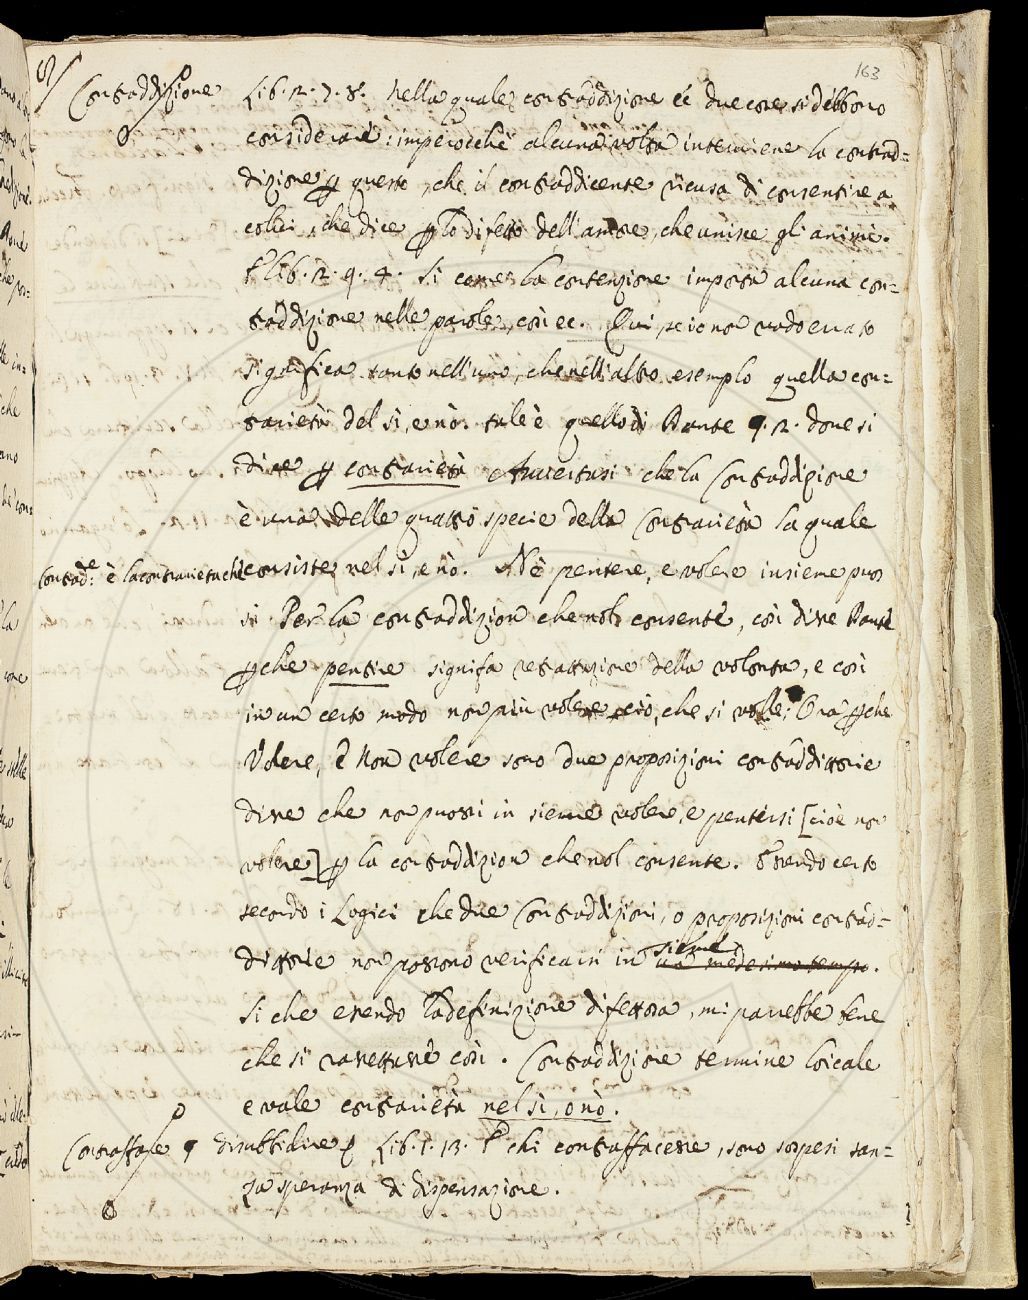 163
Contraddizione Lib. 2. 7. 8. Nella quale contraddizione éé due cose si debbono
considerare: imperocchè alcuna volta interviene la contrad=
dizione ꝑ questo, che il contraddicente ricusa di consentire a
colui, che dice ꝑ lo difetto dell'amore, che unisce gli animi.
E lib. 2. 9. 4. Si come la contenzione importa alcuna con=
traddizione nelle parole, così ec. Qui, se io non vado errato
significa tanto nell'uno, che nell'altro esemplo quella con=
trarietà del sì, e nò. tale è quello di Dante q. 2. dove si
dice ꝑ contrarietà Avvertasi che la Contraddizione
è una delle quattro specie della Contrarietà la quale
Contrad.e: è la contrarietà che consiste nel sì, e nò. Nè pentere, e volere insieme puos
si Per la contraddizion che nol consente, così dice Dante
ꝑche pentire signifa retrattazione della volontà, e così
in un certo modo non più volere ciò, che si volle; Ora ꝑche
Volere, e Non volere sono due proposizioni contraddittorie
dice che non puossi in sieme volere, e pentersi [cioè non
volere] ꝑ la contraddizion che nol consente. Essendo certo
secondo i Logici che due Contraddizioni, o proposizioni contrad=
dittorie non possono verificarsi in sieme un medesimo tempo.
Si che essendo la definizione difettosa, mi parrebbe bene
che si rassettasse così. Contraddizione termine loicale
e vale contrarietà nel sì, o nò.
Contraffare q disubbidire Lib. 1. 13. E chi contraffacesse, sono sospesi san=
za speranza di dispensazione.